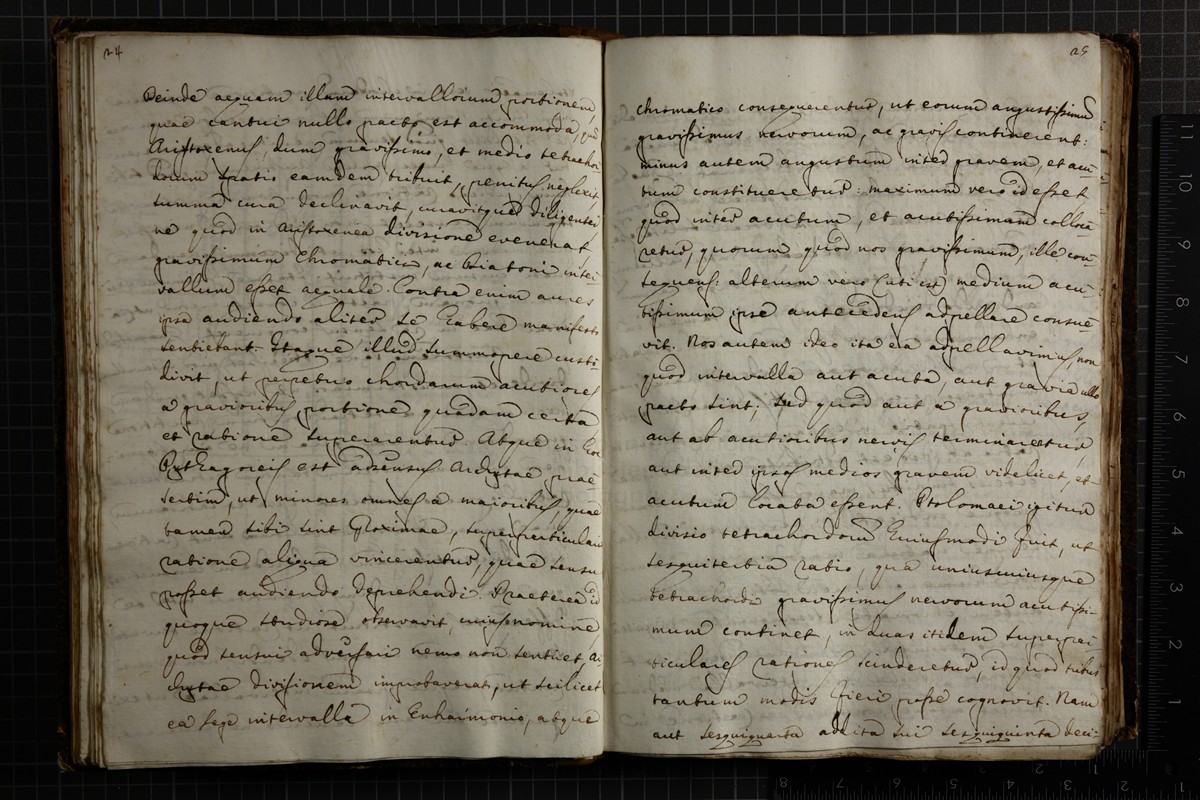 24
Deinde aequam illam intervallorum portionem,
quae cantui nullo pacto est accommoda, quam
Aristoxenus, dum gravissimo, et medio tetrachor
dorum spatio eamdem tribuit, penitus neglexit
summa cura declinavit, curavitque diligenter
ne quod in Aristoxenea divisione evenerat,
gravissimum Chromatici, ac Diatoni inter
vallum esset aequale. Contra enim aures
ipsa audiendo aliter se habere manifesto
sentiebant. Itaque illud summopere custo
divit, ut perpetuo chordarum acutiores
a gravioribus portione quadam certa
et ratione superarentur. Atque in hoc
Pythagoreis est adsensus Archytae prae
sertim, ut minores omnes a majoribus, quae
tamen sibi sint proximae, superparticulari
ratione aliqua vincerentur, quae sensu
posset audiendo deprehendi. Praeterea id
quoque studiose observavit, cuius nomine
quod sensui adversari nemo non sentiet, Ar
chytae divisionem improbaverat, ut scilicet
ea lege intervalla in Enharmonio, atque
25
chromatico consequerentur, ut eorum angustissimum
gravissimus nervorum, ac gravis continerent:
minus autem angustum inter gravem, et acu-
tum constitueretur: maximum vero id esset
quod inter acutum, et acutissimam colloca
retur, quorum quod nos gravissimum, ille con-
sequens: alterum vero (uti est) medium acu-
tissimum ipse antecedens adpellare consue
vit. Nos autem ideo ita ea adpellavimus, non
quod intervalla aut acuta, aut gravia ullo
pacto sint; sed quod aut a gravioribus,
aut ab acutioribus nervis terminarentur,
aut inter ipsos medios gravem videlicet, et
acutum locata essent. Ptolomaei igitur
divisio tetrachordorum huiusmodi fuit, ut
sesquitertia ratio, qua uniuscuiusque
tetrachordi gravissimus nervorum acutissi-
mum continet, in duas itidem superpar
ticulares rationes scinderetur, id quod tribus
tantum modis fieri posse cognovit. Nam
aut sesquiquarta addita sui sesquiquinta deci-